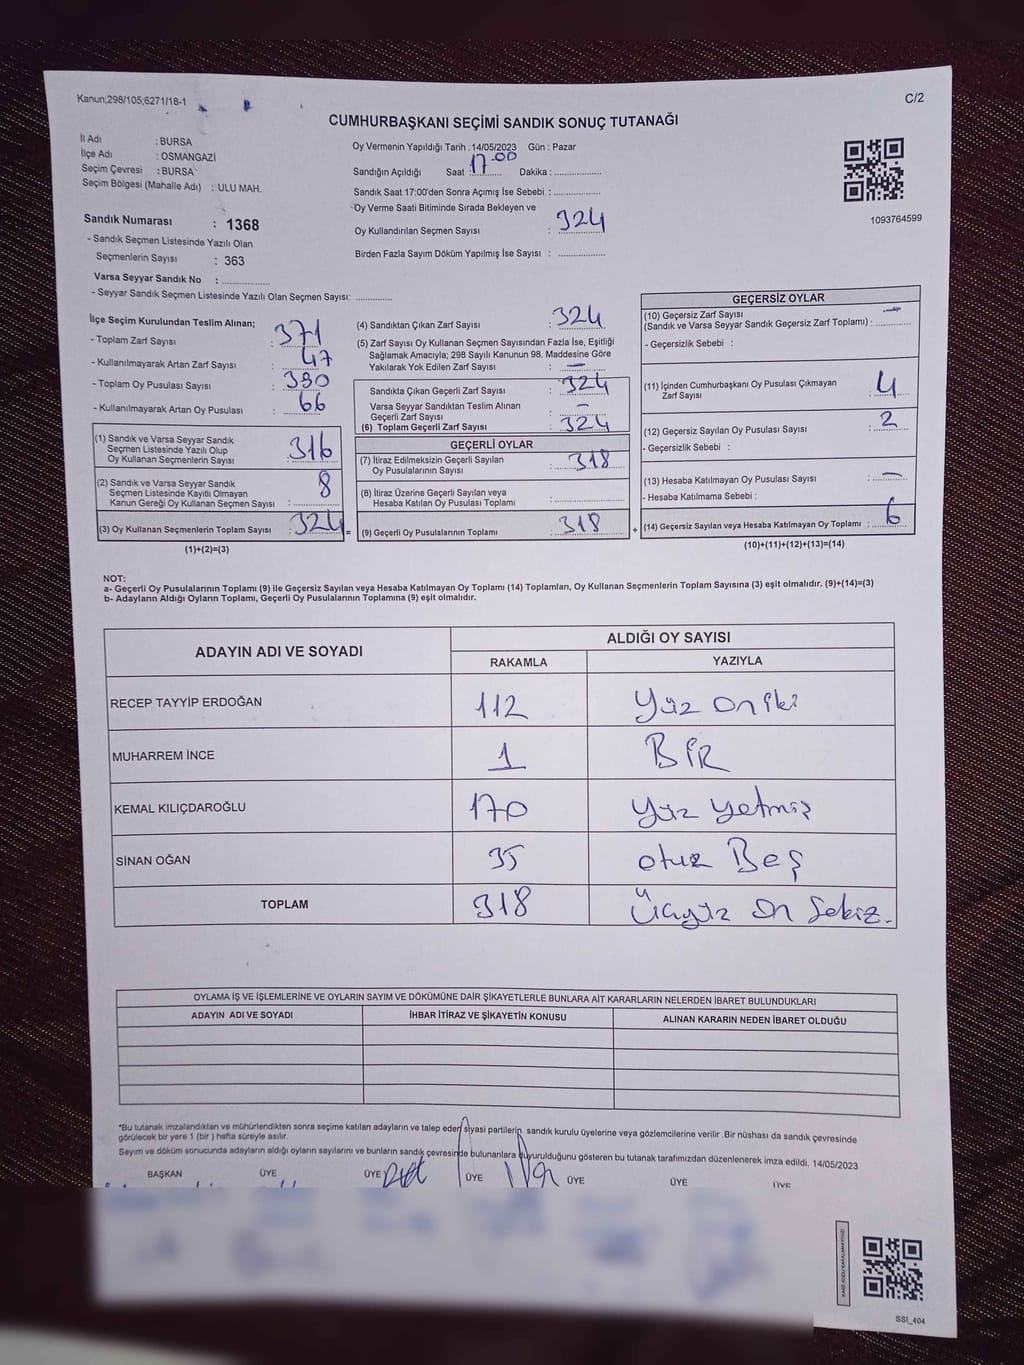 Kanun;298/105;6271/18-1
C/2
CUMHURBAŞKANI SEÇİMİ SANDIK SONUÇ TUTANAĞI
İl Adı : BURSA
İlçe Adı : OSMANGAZİ
Seçim Çevresi : BURSA
Seçim Bölgesi (Mahalle Adı) : ULU MAH.
Oy Vermenin Yapıldığı Tarih : 14/05/2023 Gün : Pazar
Sandığın Açıldığı Saat : 17.00 Dakika : ..................
Sandık Saat 17:00'den Sonra Açımış İse Sebebi : ..................
Oy Verme Saati Bitiminde Sırada Bekleyen ve
Oy Kullandırılan Seçmen Sayısı : 324
Birden Fazla Sayım Döküm Yapılmış İse Sayısı : ..................
1093764599
Sandık Numarası : 1368
- Sandık Seçmen Listesinde Yazılı Olan
Seçmenlerin Sayısı : 363
Varsa Seyyar Sandık No : ..................
- Seyyar Sandık Seçmen Listesinde Yazılı Olan Seçmen Sayısı: ..............
İlçe Seçim Kurulundan Teslim Alınan;
- Toplam Zarf Sayısı : 371
- Kullanılmayarak Artan Zarf Sayısı : 47
- Toplam Oy Pusulası Sayısı : 390
- Kullanılmayarak Artan Oy Pusulası : 66
(1) Sandık ve Varsa Seyyar Sandık
Seçmen Listesinde Yazılı Olup
Oy Kullanan Seçmenlerin Sayısı : 316
(2) Sandık ve Varsa Seyyar Sandık
Seçmen Listesinde Kayıtlı Olmayan
Kanun Gereği Oy Kullanan Seçmen Sayısı : 8
(3) Oy Kullanan Seçmenlerin Toplam Sayısı : 324 =
(1)+(2)=(3)
(4) Sandıktan Çıkan Zarf Sayısı : 324
(5) Zarf Sayısı Oy Kullanan Seçmen Sayısından Fazla İse, Eşitliği
Sağlamak Amacıyla; 298 Sayılı Kanunun 98. Maddesine Göre
Yakılarak Yok Edilen Zarf Sayısı : —
Sandıkta Çıkan Geçerli Zarf Sayısı : 324
Varsa Seyyar Sandıktan Teslim Alınan
Geçerli Zarf Sayısı : —
(6) Toplam Geçerli Zarf Sayısı : 324
GEÇERLİ OYLAR
(7) İtiraz Edilmeksizin Geçerli Sayılan
Oy Pusulalarının Sayısı : 318
(8) İtiraz Üzerine Geçerli Sayılan veya
Hesaba Katılan Oy Pusulası Toplamı : ..................
(9) Geçerli Oy Pusulalarının Toplamı : 318 +
GEÇERSİZ OYLAR
(10) Geçersiz Zarf Sayısı
(Sandık ve Varsa Seyyar Sandık Geçersiz Zarf Toplamı) : —
- Geçersizlik Sebebi :
(11) İçinden Cumhurbaşkanı Oy Pusulası Çıkmayan
Zarf Sayısı : 4
(12) Geçersiz Sayılan Oy Pusulası Sayısı : 2
- Geçersizlik Sebebi :
(13) Hesaba Katılmayan Oy Pusulası Sayısı : —
- Hesaba Katılmama Sebebi :
(14) Geçersiz Sayılan veya Hesaba Katılmayan Oy Toplamı : 6
(10)+(11)+(12)+(13)=(14)
NOT:
a- Geçerli Oy Pusulalarının Toplamı (9) ile Geçersiz Sayılan veya Hesaba Katılmayan Oy Toplamı (14) Toplamları, Oy Kullanan Seçmenlerin Toplam Sayısına (3) eşit olmalıdır. (9)+(14)=(3)
b- Adayların Aldığı Oyların Toplamı, Geçerli Oy Pusulalarının Toplamına (9) eşit olmalıdır.
ADAYIN ADI VE SOYADI ALDIĞI OY SAYISI
RAKAMLA YAZIYLA
RECEP TAYYİP ERDOĞAN 112 Yüz On iki
MUHARREM İNCE 1 BİR
KEMAL KILIÇDAROĞLU 170 Yüz yetmiş
SİNAN OĞAN 35 otuz Beş
TOPLAM 318 Üçyüz On Sekiz.
OYLAMA İŞ VE İŞLEMLERİNE VE OYLARIN SAYIM VE DÖKÜMÜNE DAİR ŞİKAYETLERLE BUNLARA AİT KARARLARIN NELERDEN İBARET BULUNDUKLARI
ADAYIN ADI VE SOYADI İHBAR İTİRAZ VE ŞİKAYETİN KONUSU ALINAN KARARIN NEDEN İBARET OLDUĞU
*Bu tutanak imzalandıktan ve mühürlendikten sonra seçime katılan adayların ve talep eden siyasi partilerin sandık kurulu üyelerine veya gözlemcilerine verilir .Bir nüshası da sandık çevresinde
görülecek bir yere 1 (bir ) hafta süreyle asılır.
Sayım ve döküm sonucunda adayların aldığı oyların sayılarını ve bunların sandık çevresinde bulunanlara duyurulduğunu gösteren bu tutanak tarafımızdan düzenlenerek imza edildi. 14/05/2023
BAŞKAN ÜYE ÜYE ÜYE ÜYE ÜYE ÜYE
SSI_404